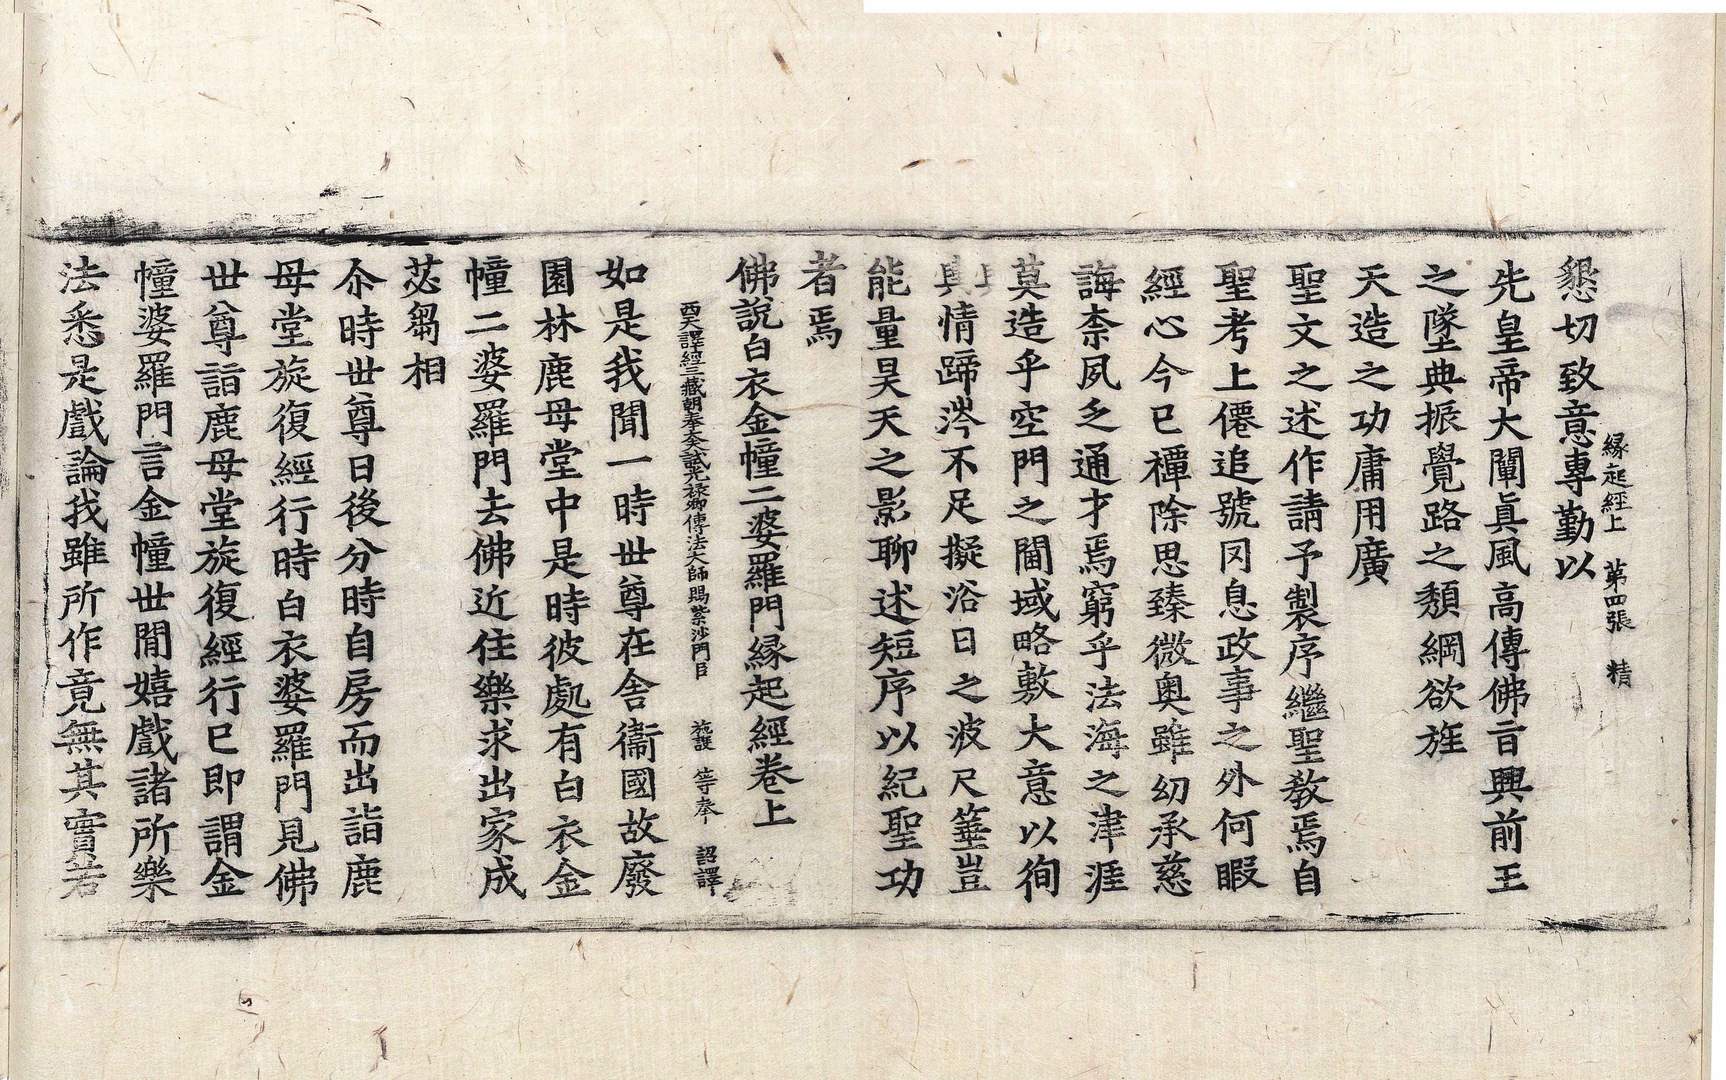 緣起經上　第四張　精
懇切致意專勤以
先皇帝大闡眞風高傳佛旨興前王
之墜典振覺路之頹綱欲旌
天造之功庸用廣
聖文之述作請予製序繼聖教焉自
聖考上僊追號罔息政事之外何暇
經心今已禫除思臻微奥雖幼承慈
誨柰夙乏通才焉窮乎法海之津涯
莫造乎空門之閫域略敷大意以徇
具情蹄涔不足擬浴日之波尺箠豈
能量昊天之影聊述短序以紀聖功
者焉
佛說白衣金幢二婆羅門緣起經卷上
西天譯經三藏朝奉大夫試光祿卿傳法大師賜紫沙門臣　施護　等奉　詔譯
如是我聞一時世尊在舍衞國故廢
園林鹿母堂中是時彼處有白衣金
幢二婆羅門去佛近住樂求出家成
苾芻相
尒時世尊日後分時自房而出詣鹿
母堂旋復經行時白衣婆羅門見佛
世尊詣鹿母堂旋復經行已即謂金
幢婆羅門言金幢世間嬉戲諸所樂
法悉是戲論我雖所作竟無其實若